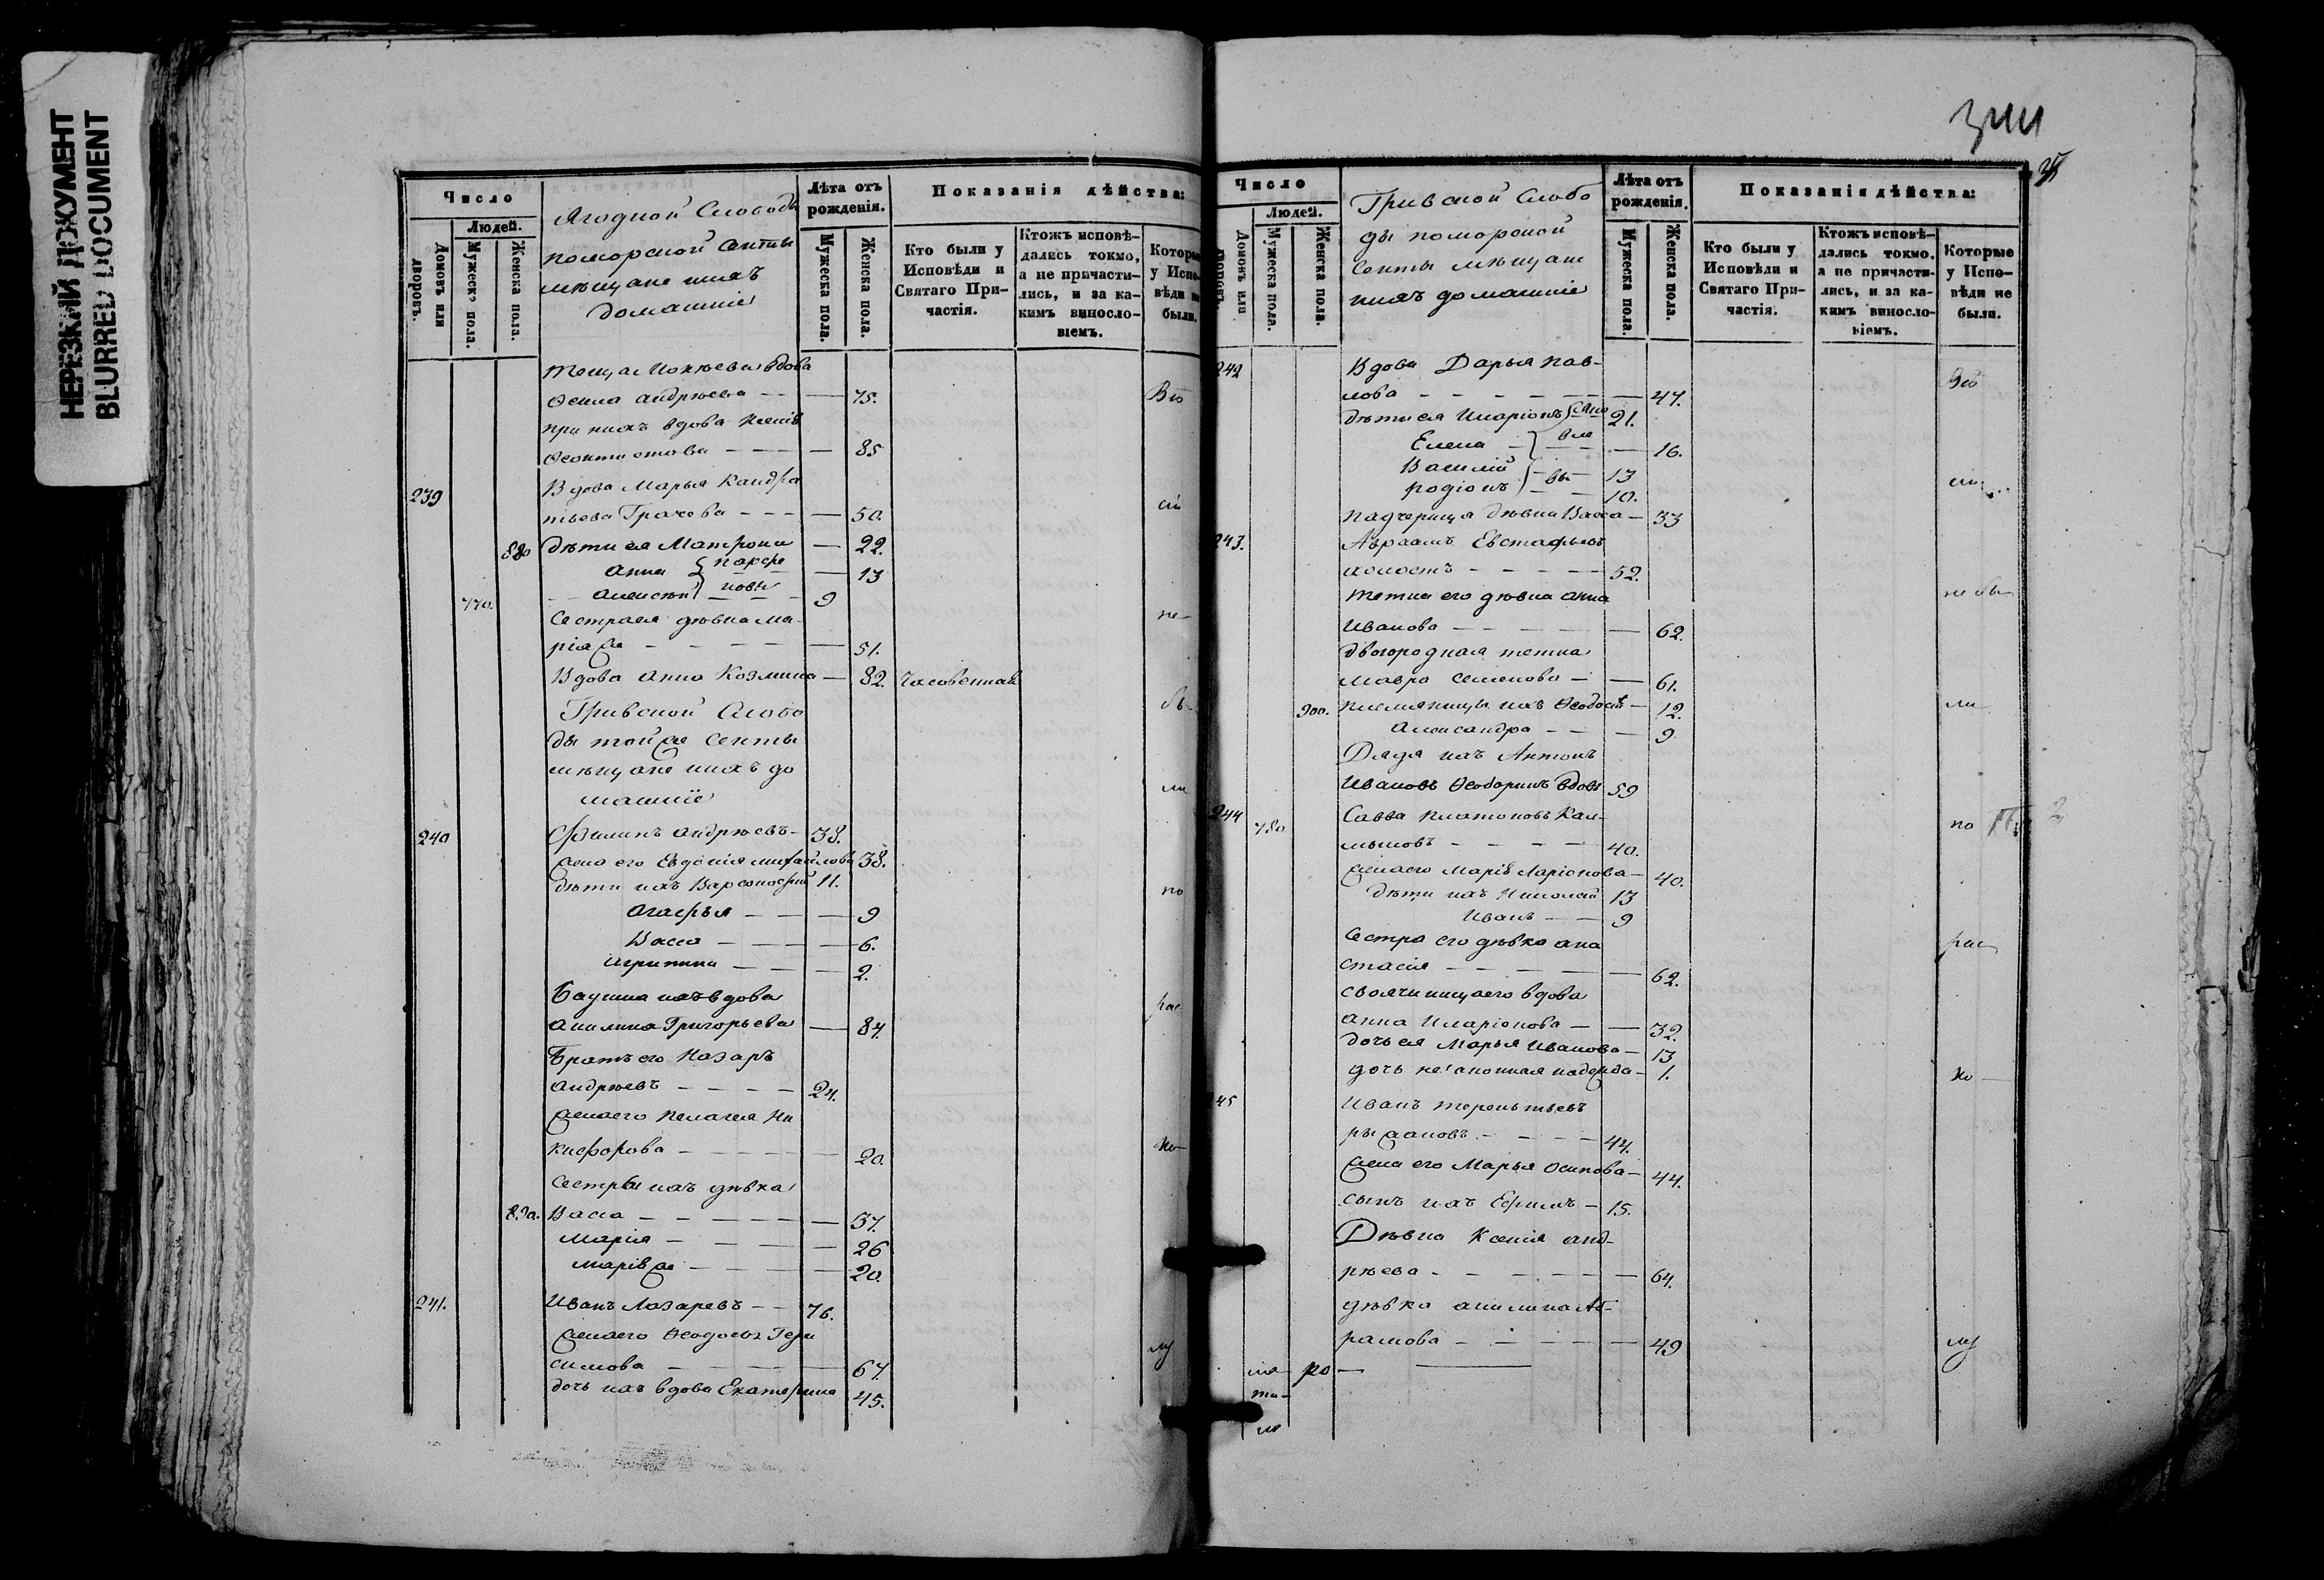 НЕРЕЗКИЙ ДОКУМЕНТ
BLURRED DOCUMENT
Число
Людей.
Домовъ или дворовъ.
Мужеска пола.
Женска пола.
Ягодной Слободы
поморской секты
мѣщане и ихъ
домашніе
Лѣта отъ рожденія.
Мужеска пола.
Женска пола.
Показанія дѣйства:
Кто были у Исповѣди и Святаго Причастія.
Ктожъ исповѣдались токмо, а не причастились, и за какимъ винословіемъ.
Которые у Исповѣди не были.
теща Мокѣева вдова
Ѳекла Андрѣева — 75.
при нихъ вдова Ксенія
Ѳеоктистова — 85
239 Вдова Марья Кандра
тьева Грачева — 50.
880 дѣти ея Матрона — 22.
Анна } парфе — 13
770. Алексѣй } новы — 9
Сестра ея дѣвка Ма
рія же — 51.
Вдова Анна Козмина — 82. Часовенная
Гривской Слобо
ды той же секты
мѣщане и ихъ до
машніе
240 Филипъ Андрѣевъ — 38.
жена его Евдокія Михайлова 38.
дѣти ихъ Варсонофій 11.
Агафья — 9
Васса — 6.
Агрипина — 2.
Бабушка ихъ вдова
Акилина Григорьева — 84.
Братъ его Назаръ
Андрѣевъ — 24.
жена его Пелагея Ни
кифорова — 20.
Сестры ихъ дѣвка
890. Васса — 37.
Марія — 26
Марія же — 20.
241. Иванъ Лазаревъ — 76.
жена его Ѳеодосья Гера
симова — 67.
дочь ихъ вдова Екатерина 45.
Число
Людей.
Домовъ или дворовъ.
Мужеска пола.
Женска пола.
Гривской Слобо
ды поморской
секты мѣщане
и ихъ домашніе
Лѣта отъ рожденія.
Мужеска пола.
Женска пола.
Показанія дѣйства:
Кто были у Исповѣди и Святаго Причастія.
Ктожъ исповѣдались токмо, а не причастились, и за какимъ винословіемъ.
Которые у Исповѣди не были.
242 Вдова Дарья Пав-
лова — 47.
дѣти ея Иларіонъ 21.
Елена — 16.
Василій 13
Родіонъ 10.
Падчерица дѣвка Васса — 33
243. Авраамъ Евстафьевъ
холостъ — 52.
тетка его дѣвка Анна не бы
Иванова — 62.
двоюродная тетка
Мавра Семенова — 61.
900. племянницы ихъ Ѳеодосія — 12. ли
Александра — 9.
Дядя ихъ Антонъ
Ивановъ вдовъ 59
244 Савва Платоновъ Кал-
780 мыковъ — 40. по
жена его Марія Ларіонова — 40.
дѣти ихъ Николай 13
Иванъ — 9
Сестра его дѣвка Ана рас
стасія — 62.
своячиница его вдова
Анна Иларіонова — 32.
дочь ея Марья Иванова — 13
дочь незаконная Надежда — 1. ко
245 Иванъ Терентьевъ
Рыжановъ — 44.
жена его Марья Осипова — 44.
сынъ ихъ Ефимъ — 15.
Дѣвка Ксенія Анд-
рѣева — 64.
дѣвка Акилина Аб-
рамова — 49